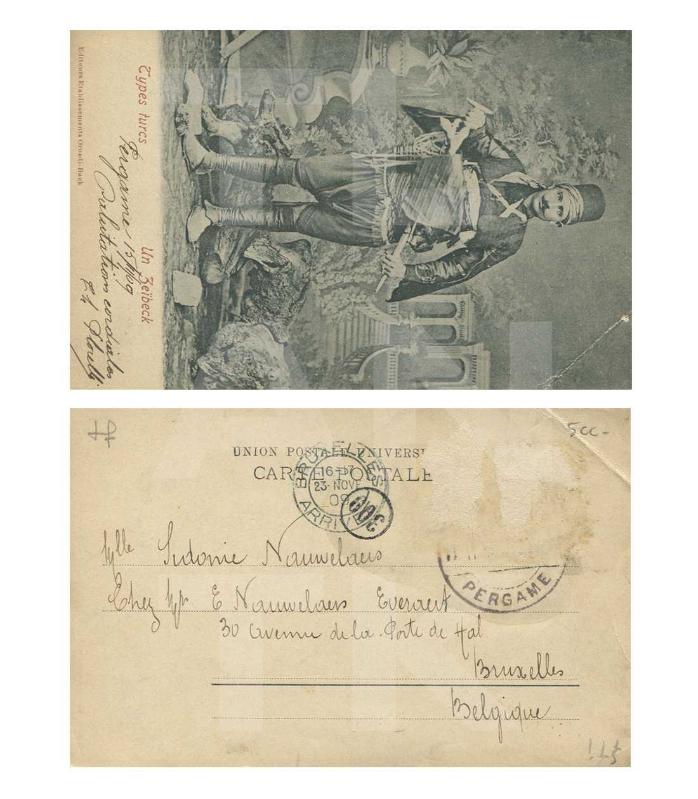 Types turcs
Un Zeïbeck
Editeurs Etablissements Orosdi-Back
Pergame 15/11/09
Salutation cordiales
UNION POSTALE UNIVERS
CARTE POSTALE
BRUXELLES
16-17
23 NOVE
09
ARRI
300
500-
Mlle Sidonie Nauwelaers
PERGAME
Chez Mr E Nauwelaers Everaert
30 avenue de la Porte de Hal
Bruxelles
Belgique